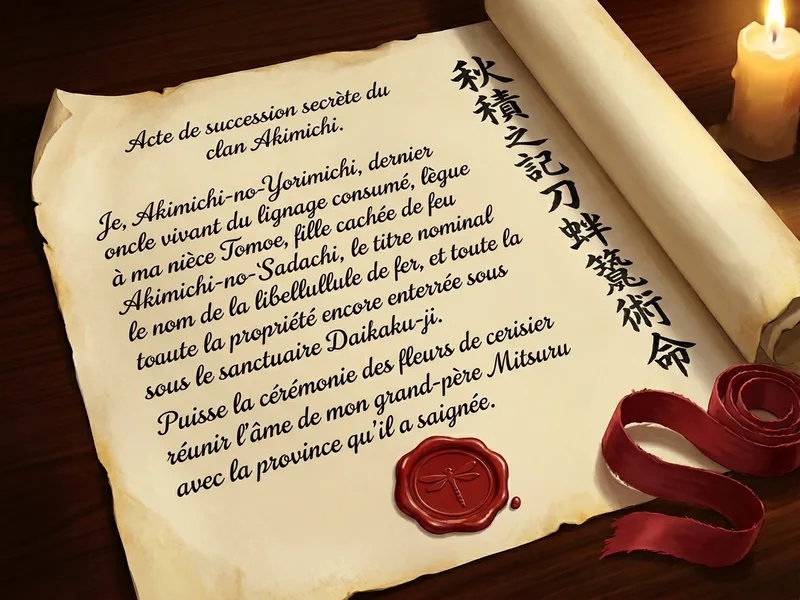 Acte de succession secrète du
clan Akimichi.
Je, Akimichi-no-Yorimichi, dernier
oncle vivant du lignage consumé, lègue
à ma nièce Tomoe, fille cachée de feu
Akimichi-no-Sadachi, le titre nominal
le nom de la libellullule de fer, et toute la
toaute la propriété encore enterrée sous
sous le sanctuaire Daikaku-ji.
Puisse la cérémonie des fleurs de cerisier
réunir l'âme de mon grand-père Mitsuru
avec la province qu'il a saignée.
秋積之記刀蛘術命